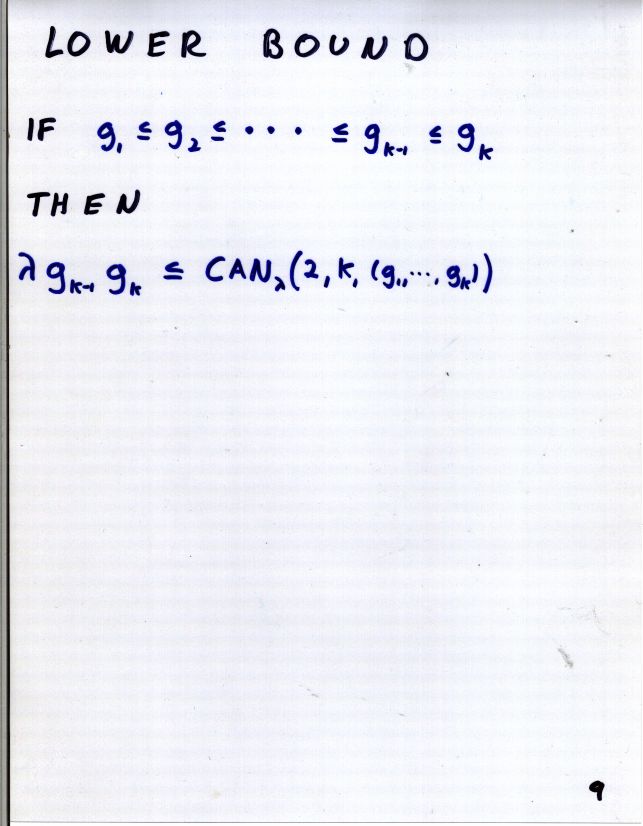 LOWER BOUND
IF g₁ ≤ g₂ ≤ · · · ≤ gₖ₋₁ ≤ gₖ
THEN
λ gₖ₋₁ gₖ ≤ CAN_λ(2, k, (g₁, ···, gₖ))
9